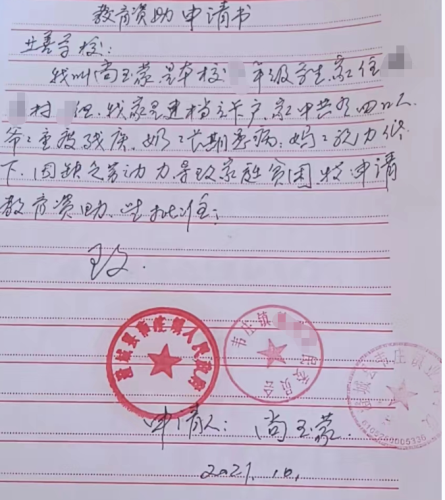 教育资助申请书
业善学校：
我叫尚玉蒙是本校 年级学生家住
村 组，我家是建档立卡户，家中共有四口人
爷爷重度残疾，奶奶长期患病，妈妈视力低
下，因缺乏劳动力导致家庭贫困，特申请
教育资助，望批准；
致
韦庄镇
民委员会
申请人：尚玉蒙
2021.10.